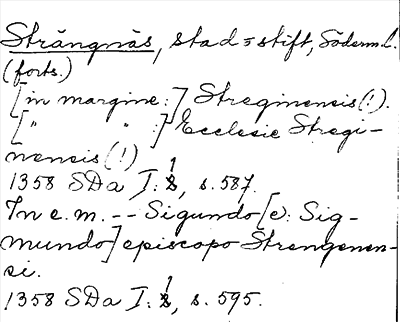 Strängnäs, stad o stift, Söderm. L.
(forts.)
[in margine:] Streginensis (!).
[" " :] Ecclesie Stregi-
nensis (!)
1358 SDa I: 1, s. 587.
In e. m. -- Sigundo [ɔ: Sig-
mundo] episcopo Strengenen-
si.
1358 SDa I: 1, s. 595.